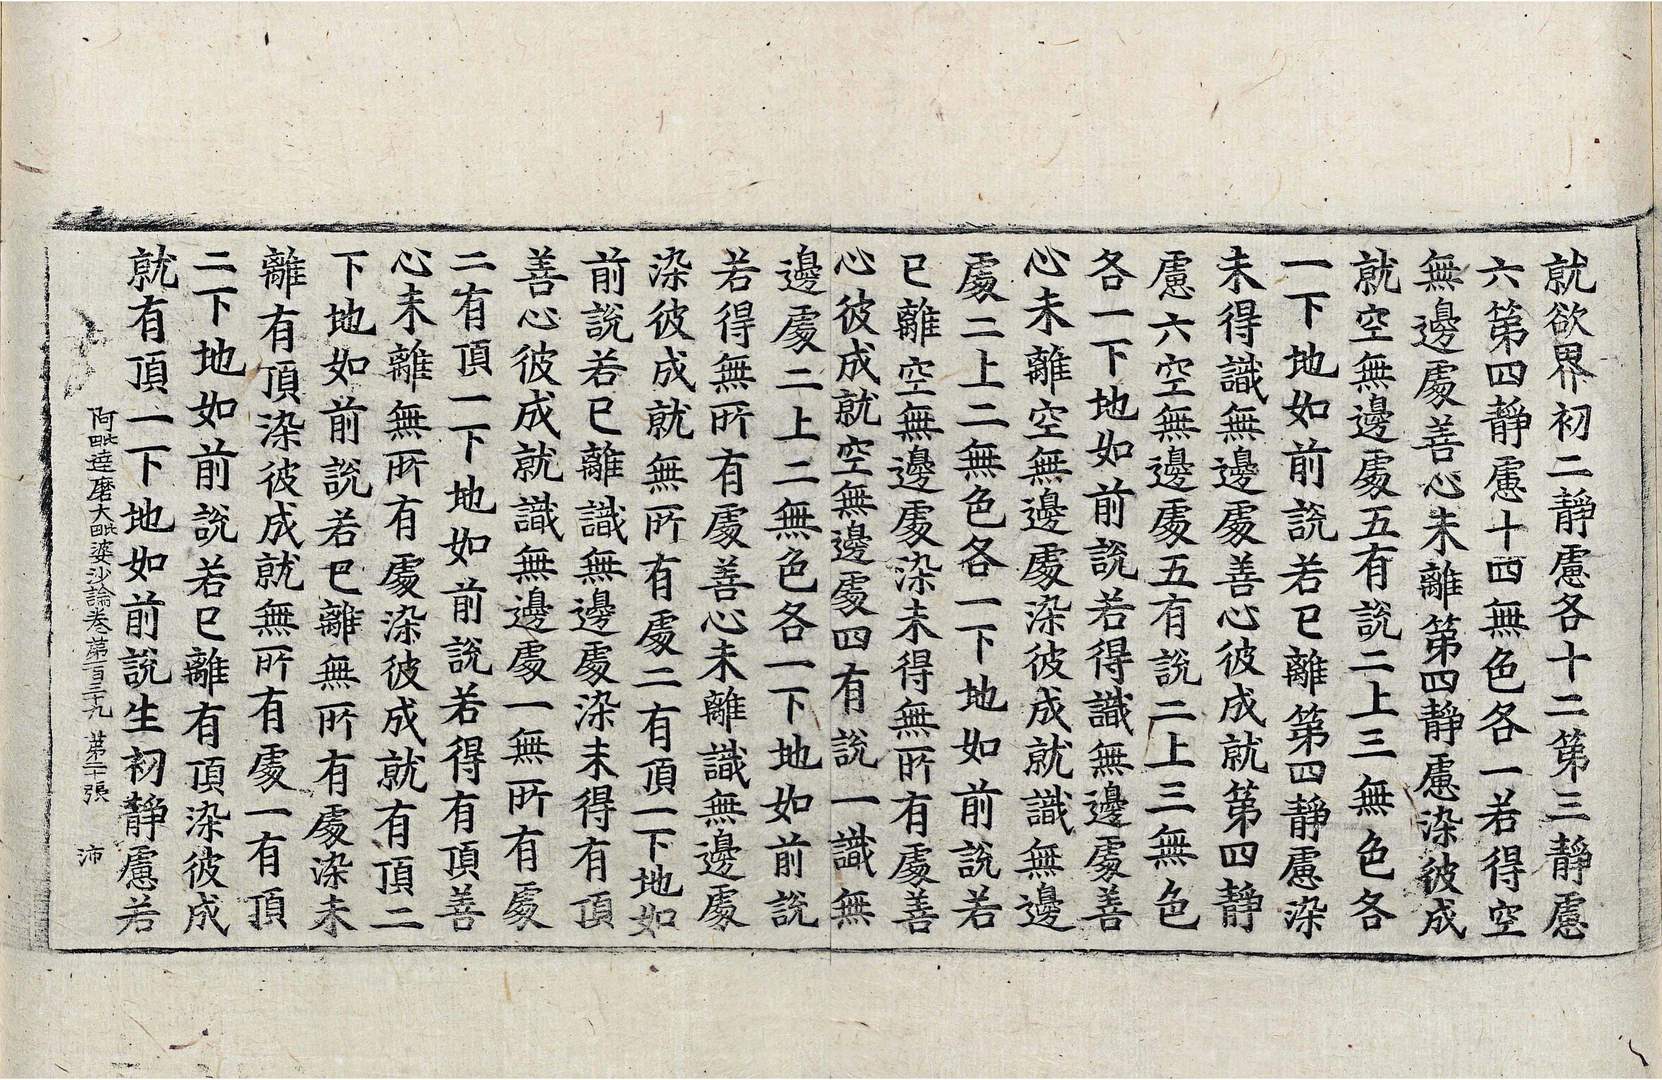 就欲界初二靜慮各十二第三靜慮
六第四靜慮十四無色各一若得空
無邊處善心未離第四靜慮染彼成
就空無邊處五有說二上三無色各
一下地如前說若已離第四靜慮染
未得識無邊處善心彼成就第四靜
慮六空無邊處五有說二上三無色
各一下地如前說若得識無邊處善
心未離空無邊處染彼成就識無邊
處二上二無色各一下地如前說若
已離空無邊處染未得無所有處善
心彼成就空無邊處四有說一識無
邊處二上二無色各一下地如前說
若得無所有處善心未離識無邊處
染彼成就無所有處二有頂一下地如
前說若已離識無邊處染未得有頂
善心彼成就識無邊處一無所有處
二有頂一下地如前說若得有頂善
心未離無所有處染彼成就有頂二
下地如前說若已離無所有處染未
離有頂染彼成就無所有處一有頂
二下地如前說若已離有頂染彼成
就有頂一下地如前說生初靜慮若
阿毗達磨大毗婆沙論卷第一百三十九 第二十張 沛